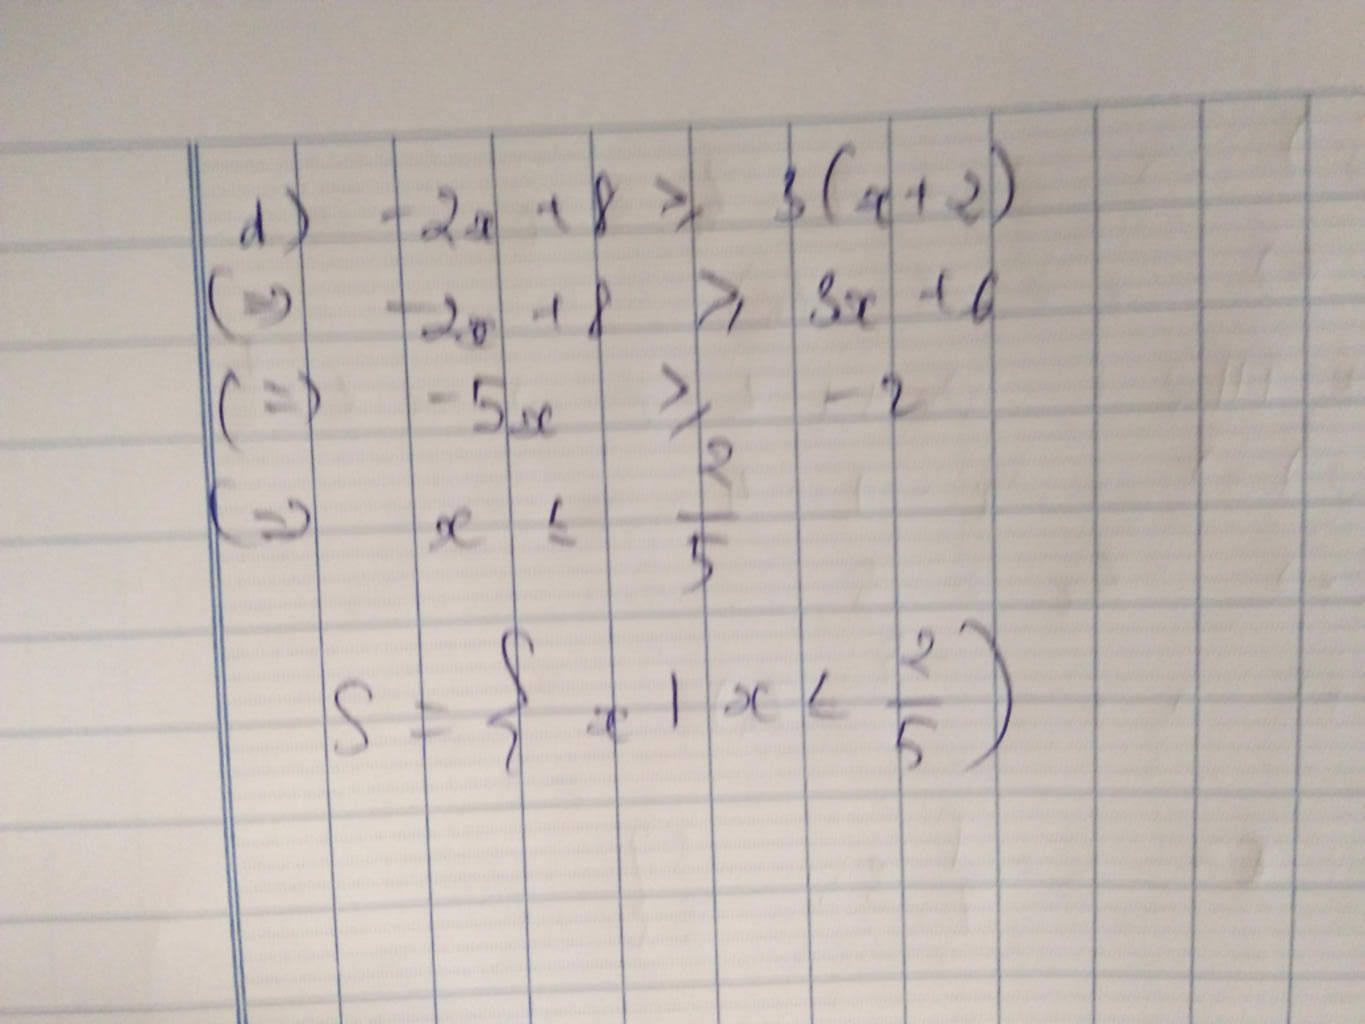 d) -2x + 8 ⩾ 3(x+2)
(=) -2x + 8 ⩾ 3x + 6
(=) -5x ⩾ -2
(=) x ≤ 2/5
S = { x | x ≤ 2/5 )